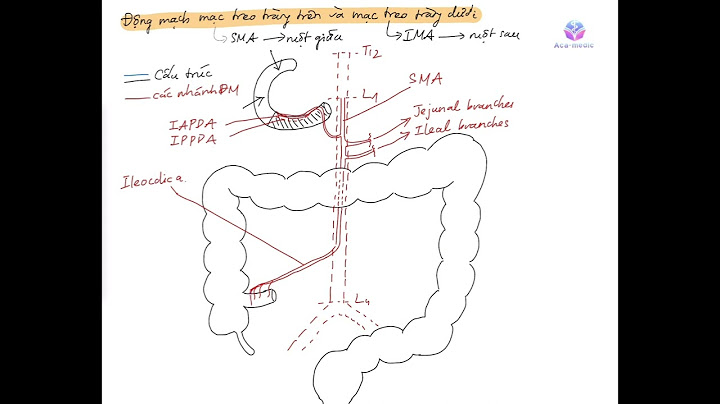 Động mạch mạc treo tràng trên và mạc treo tràng dưới:
SMA → ruột giữa
IMA → ruột sau
Aca-medic
T12
Cấu trúc
các nhánh ĐM
SMA
L1
Jejunal branches
Ileal branches
IAPDA
IPPDA
Ileocolic a.
L4